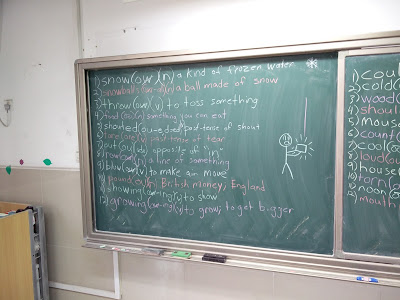 1) snow (ow) (n) a kind of frozen water
2) snowball (ow-a) (n) a ball made of snow
3) threw (ew) (v) to toss something
4) food (oo) (n) something you can eat
5) shouted (ou-ed) (v) past tense of shout
(v) past tense of tear
7) out (ou) opposite of "in"
8) row (ow) (n) a line of something
9) blow (ow) (v) to make air move
10) pound (n) British money, England
11) showing (ow-ing) (v) to show
12) growing (ow-ing) (v) to grow; to get bigger
1) coul
2) cold
3) wood
4) shoul
5) mous
6) count
7) cool
8) loud
9) house
10) torn
11) noon
12) mouth